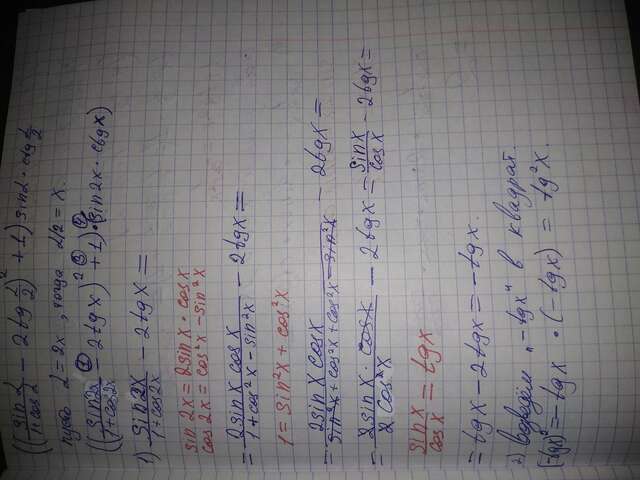 ((sinα/1+cosα − 2tg α/2)² + 1) sinα · ctg α/2
пусть α = 2x, тогда α/2 = x.
((sin2x/1+cos2x ① − 2tgx)² ② + 1) ③ · (sin2x · ctgx)
1) sin2x/1+cos2x − 2tgx =
sin2x = 2sinx · cosx
cos2x = cos²x − sin²x
= 2sinx cosx/1+cos²x − sin²x − 2tgx =
1 = sin²x + cos²x
= 2sinx cosx/sin²x + cos²x + cos²x − sin²x − 2tgx =
= 2sinx · cosx/2cos²x − 2tgx = sinx/cosx − 2tgx =
sinx/cosx = tgx
= tgx − 2tgx = −tgx.
2) возведём „−tgx" в квадрат.
(−tgx)² = −tgx · (−tgx) = tg²x.